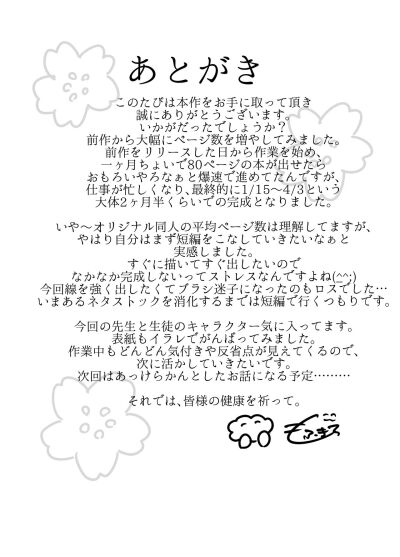 あとがき
このたびは本作をお手に取って頂き
誠にありがとうございます。
いかがだったでしょうか？
前作から大幅にページ数を増やしてみました。
前作をリリースした日から作業を始め、
一ヶ月ちょいで80ページの本が出せたら
おもろいやろなぁと爆速で進めてたんですが、
仕事が忙しくなり、最終的に1/15〜4/3という
大体2ヶ月半くらいでの完成となりました。
いや〜オリジナル同人の平均ページ数は理解してますが、
やはり自分はまず短編をこなしていきたいなぁと
実感しました。
すぐに描いてすぐ出したいので
なかなか完成しないってストレスなんですよね(^^;)
今回線を強く出したくてブラシ迷子になったのもロスでした…
いまあるネタストックを消化するまでは短編で行くつもりです。
今回の先生と生徒のキャラクター気に入ってます。
表紙もイラレでがんばってみました。
作業中もどんどん気付きや反省点が見えてくるので、
次に活かしていきたいです。
次回はあっけらかんとしたお話になる予定………
それでは、皆様の健康を祈って。